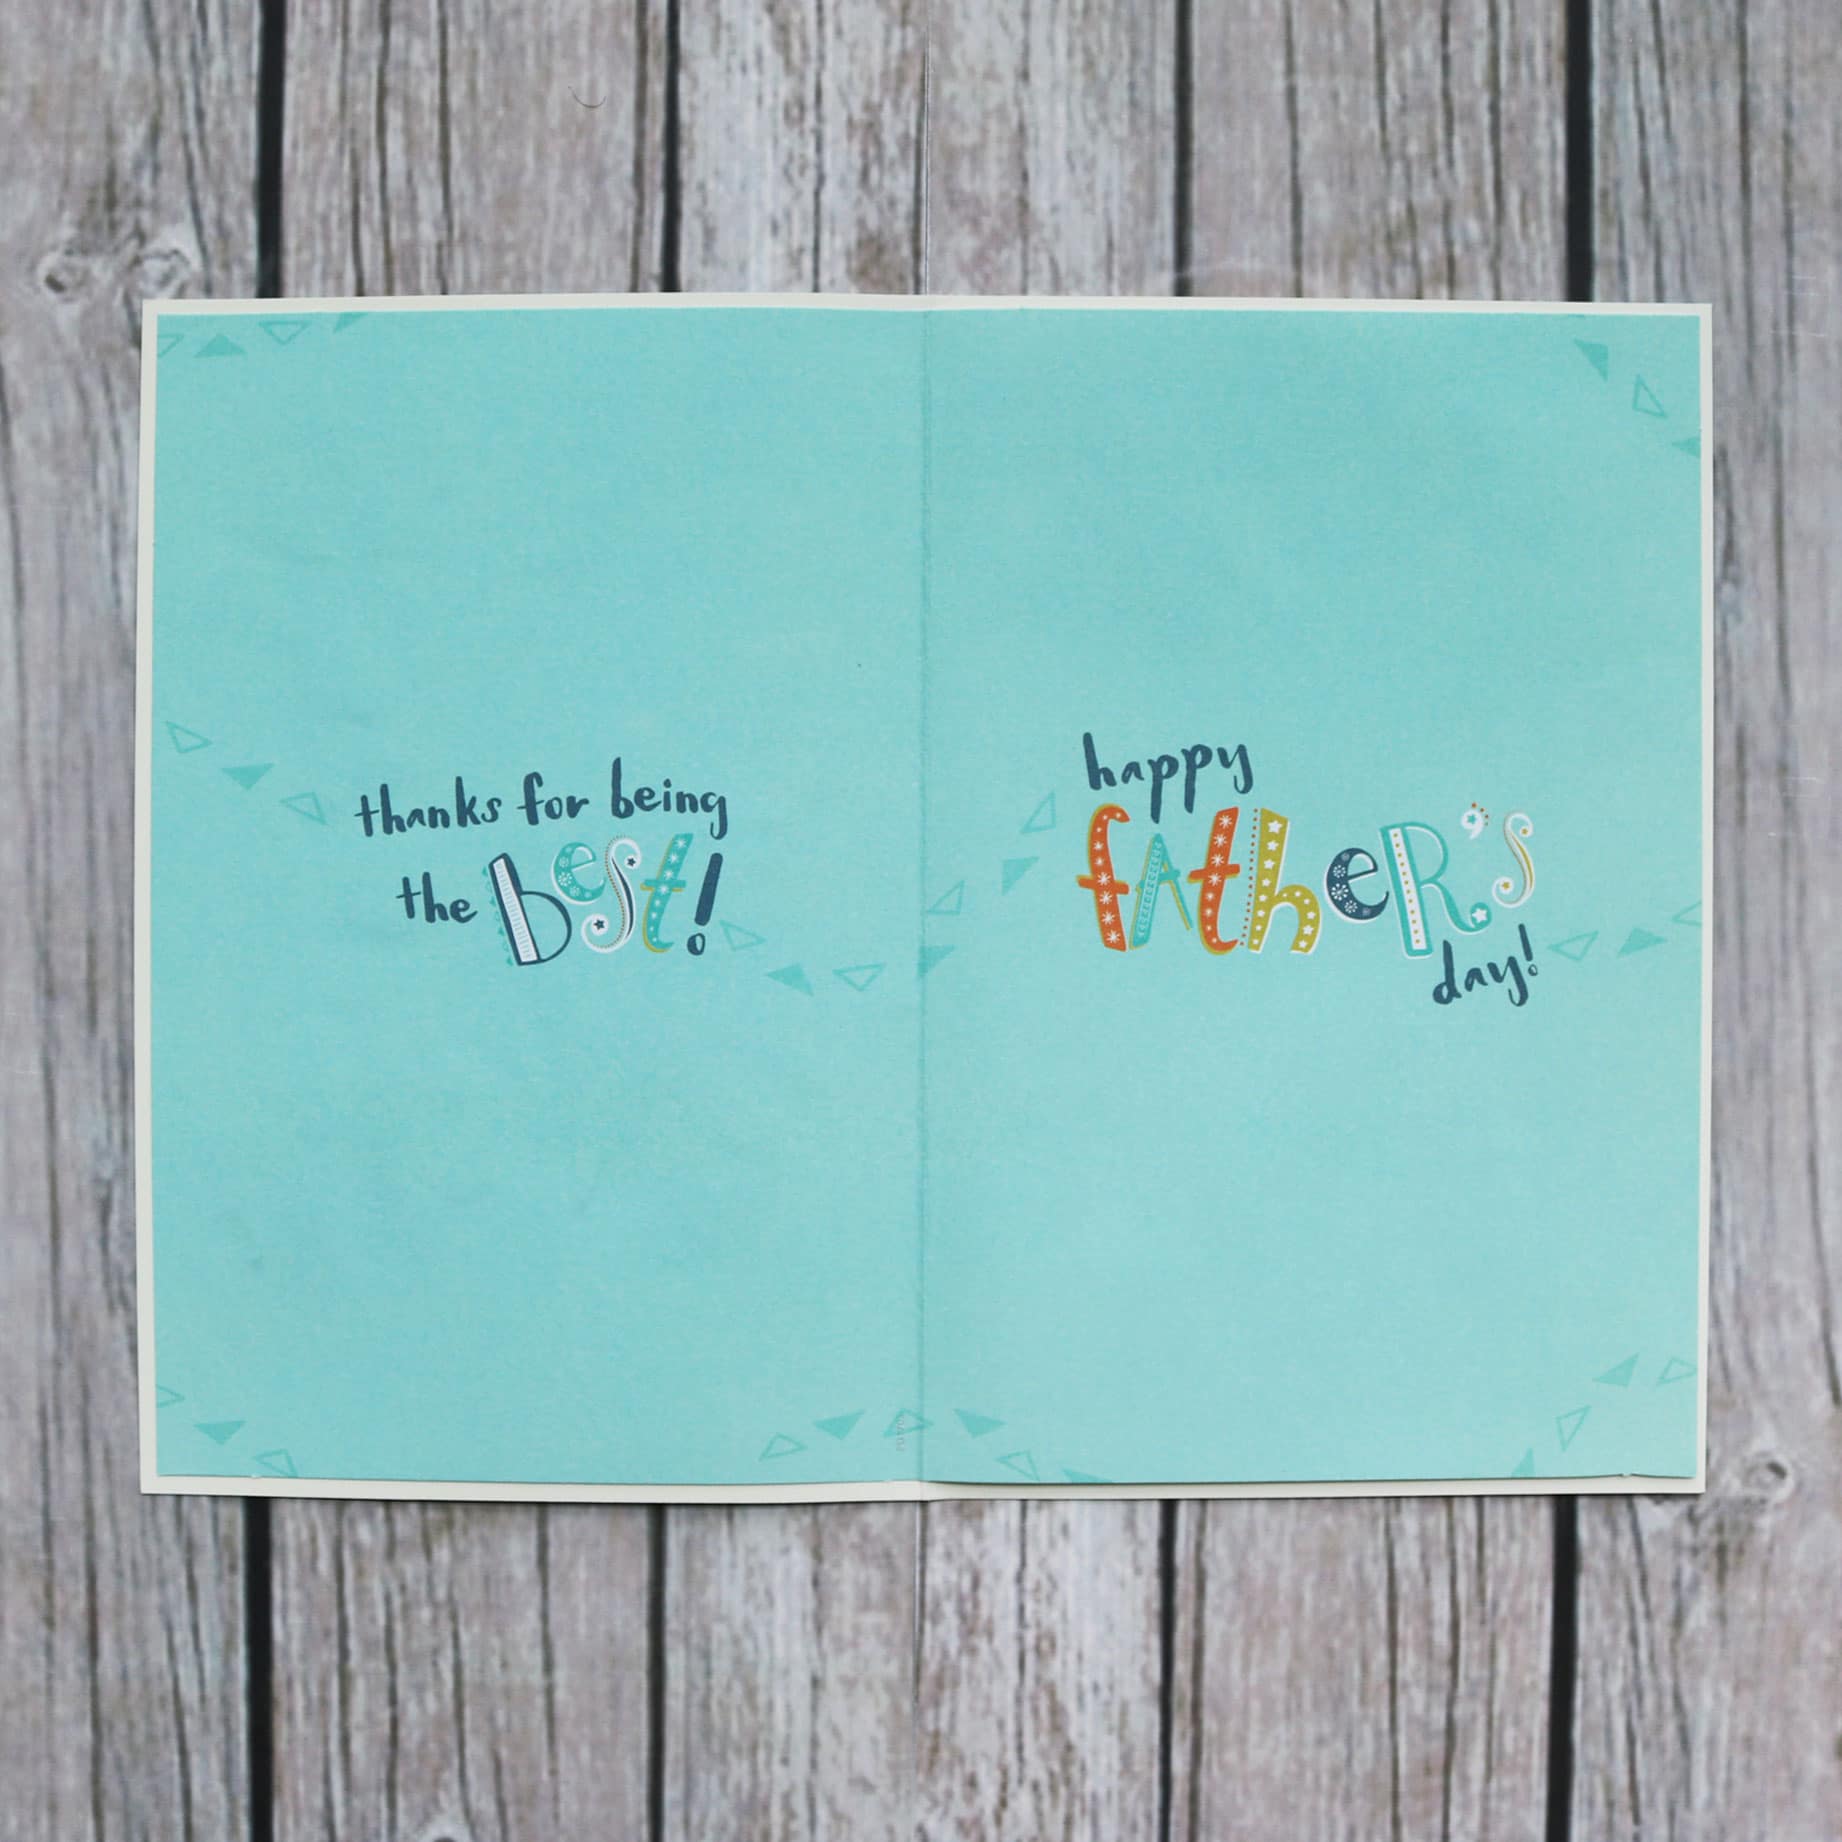 thanks for being
the best!
happy
fAtheR's
day!